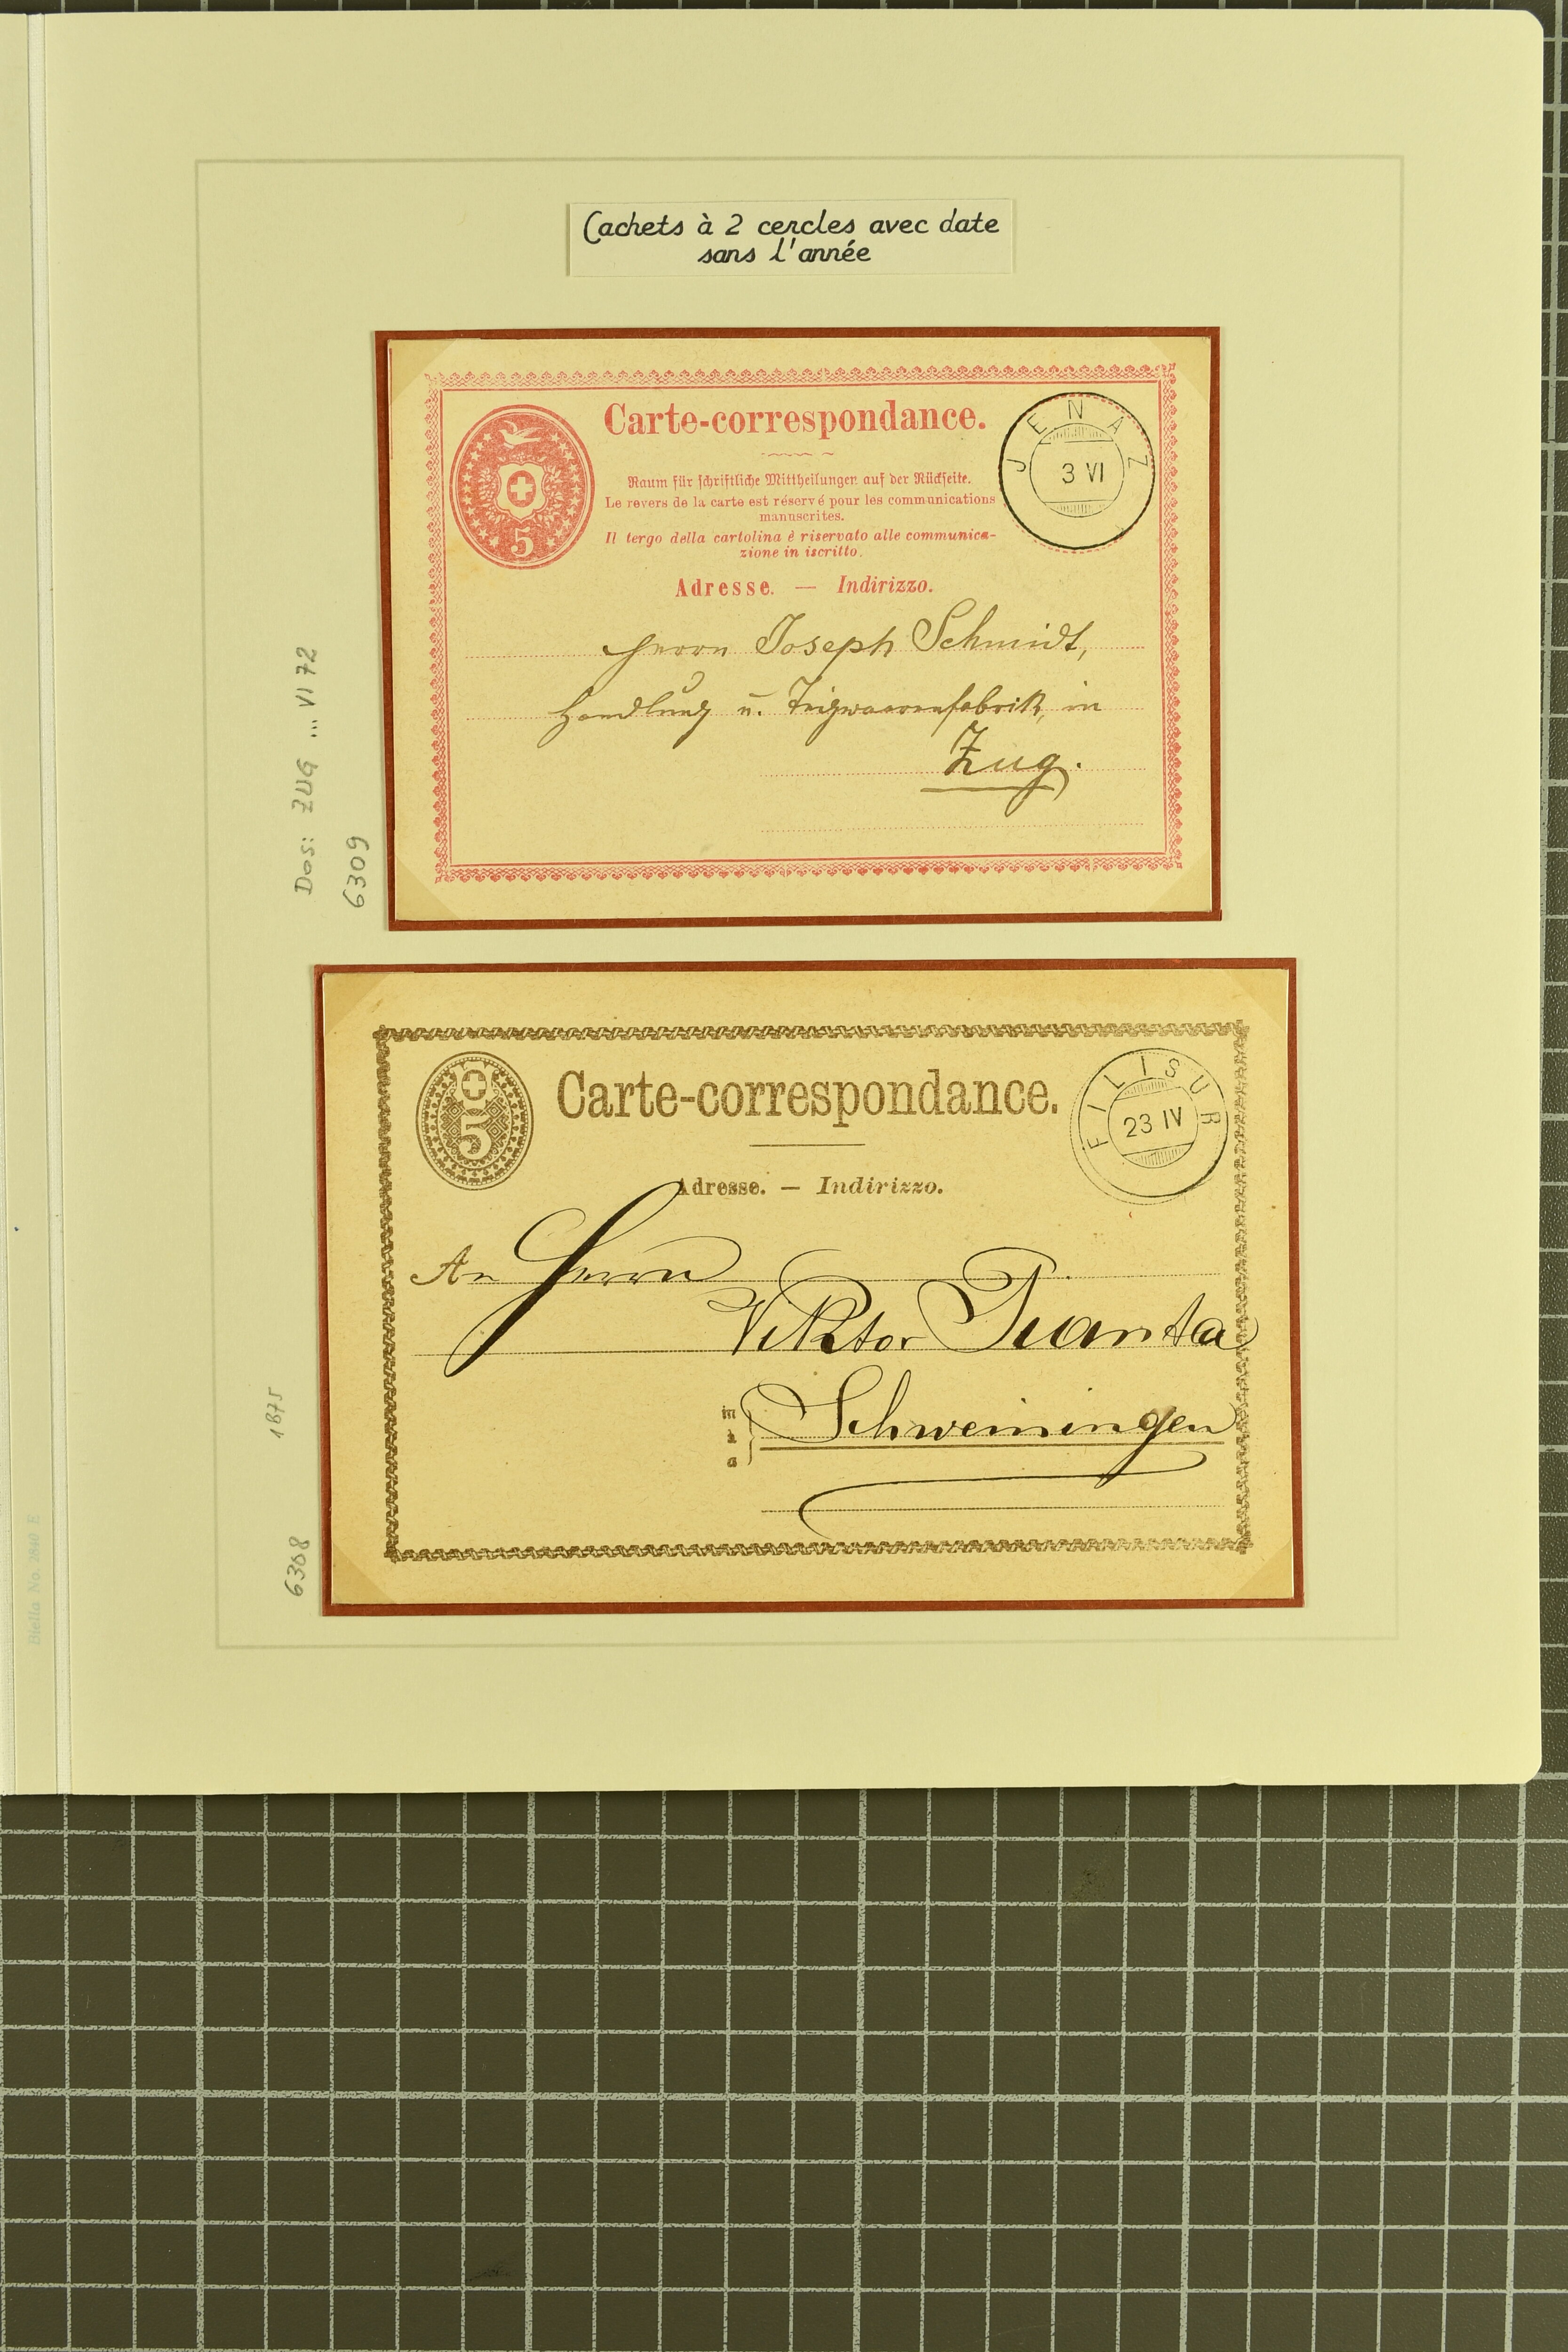 Cachets à 2 cercles avec date
sans l'année
Carte-correspondance.
Raum für schriftliche Mittheilungen auf der Rückseite.
Le revers de la carte est réservé pour les communications
manuscrites.
Il tergo della cartolina è riservato alle communica-
zione in iscritto.
Adresse. — Indirizzo.
5
JENAZ
3 VI
Herrn Joseph Schmidt,
Handlung u. Teigwaarenfabrik, in
Zug.
Dos: ZUG ... VI 72
6309
Carte-correspondance.
Adresse. — Indirizzo.
5
FILISUR
23 IV
An Herrn
Viktor
in
à
a
Schweiningen
1875
6308
Biella No. 2840 E